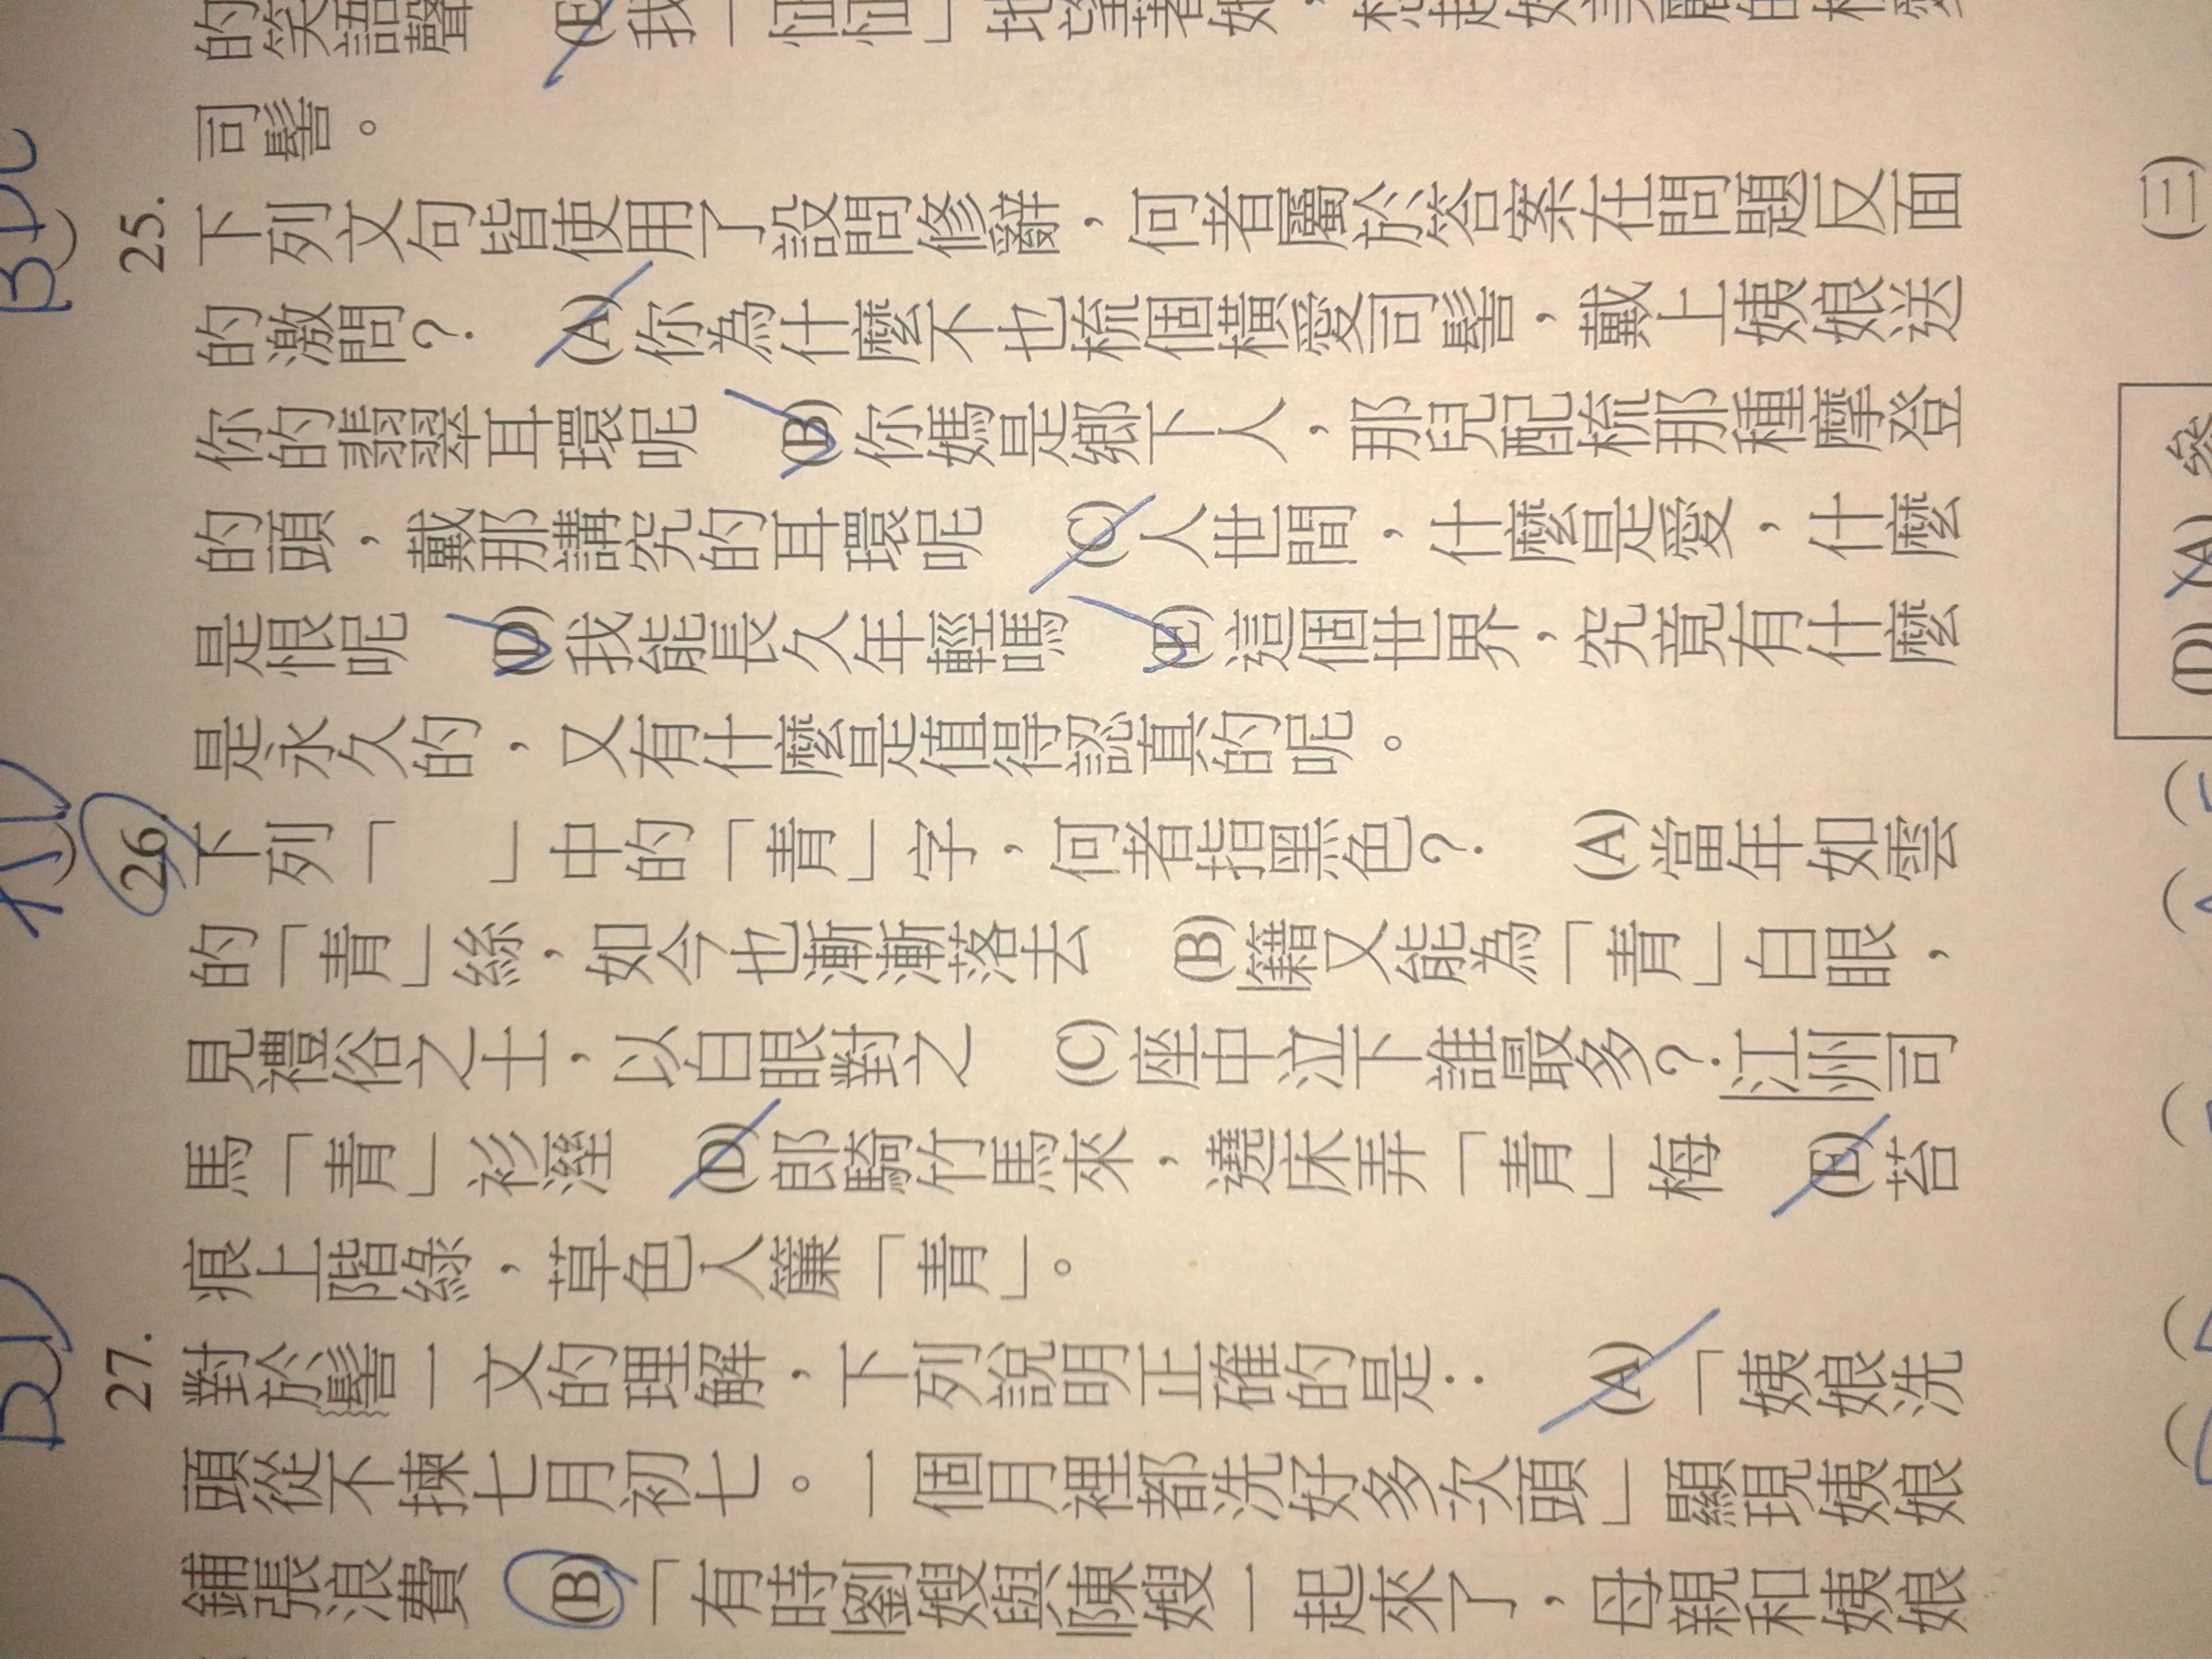 的笑語聲 (E)我「怔怔」地望著她，想起她美麗的橫愛
司髻。
25. 下列文句皆使用了設問修辭，何者屬於答案在問題反面
的激問？ (A)你為什麼不也梳個橫愛司髻，戴上姨娘送
你的翡翠耳環呢 (B)你媽是鄉下人，那兒配梳那種摩登
的頭，戴那講究的耳環呢 (C)人世間，什麼是愛，什麼
是恨呢 (D)我能長久年輕嗎 (E)這個世界，究竟有什麼
是永久的，又有什麼是值得認真的呢。
26. 下列「 」中的「青」字，何者指黑色？ (A)當年如雲
的「青」絲，如今也漸漸落去 (B)籍又能為「青」白眼，
見禮俗之士，以白眼對之 (C)座中泣下誰最多？江州司
馬「青」衫溼 (D)郎騎竹馬來，遶床弄「青」梅 (E)苔
痕上階綠，草色入簾「青」。
27. 對於髻一文的理解，下列說明正確的是： (A)「姨娘洗
頭從不揀七月初七。一個月裡都洗好多次頭」顯現姨娘
鋪張浪費 (B)「有時劉嫂與陳嫂一起來了，母親和姨娘
(三)
(D) (A)